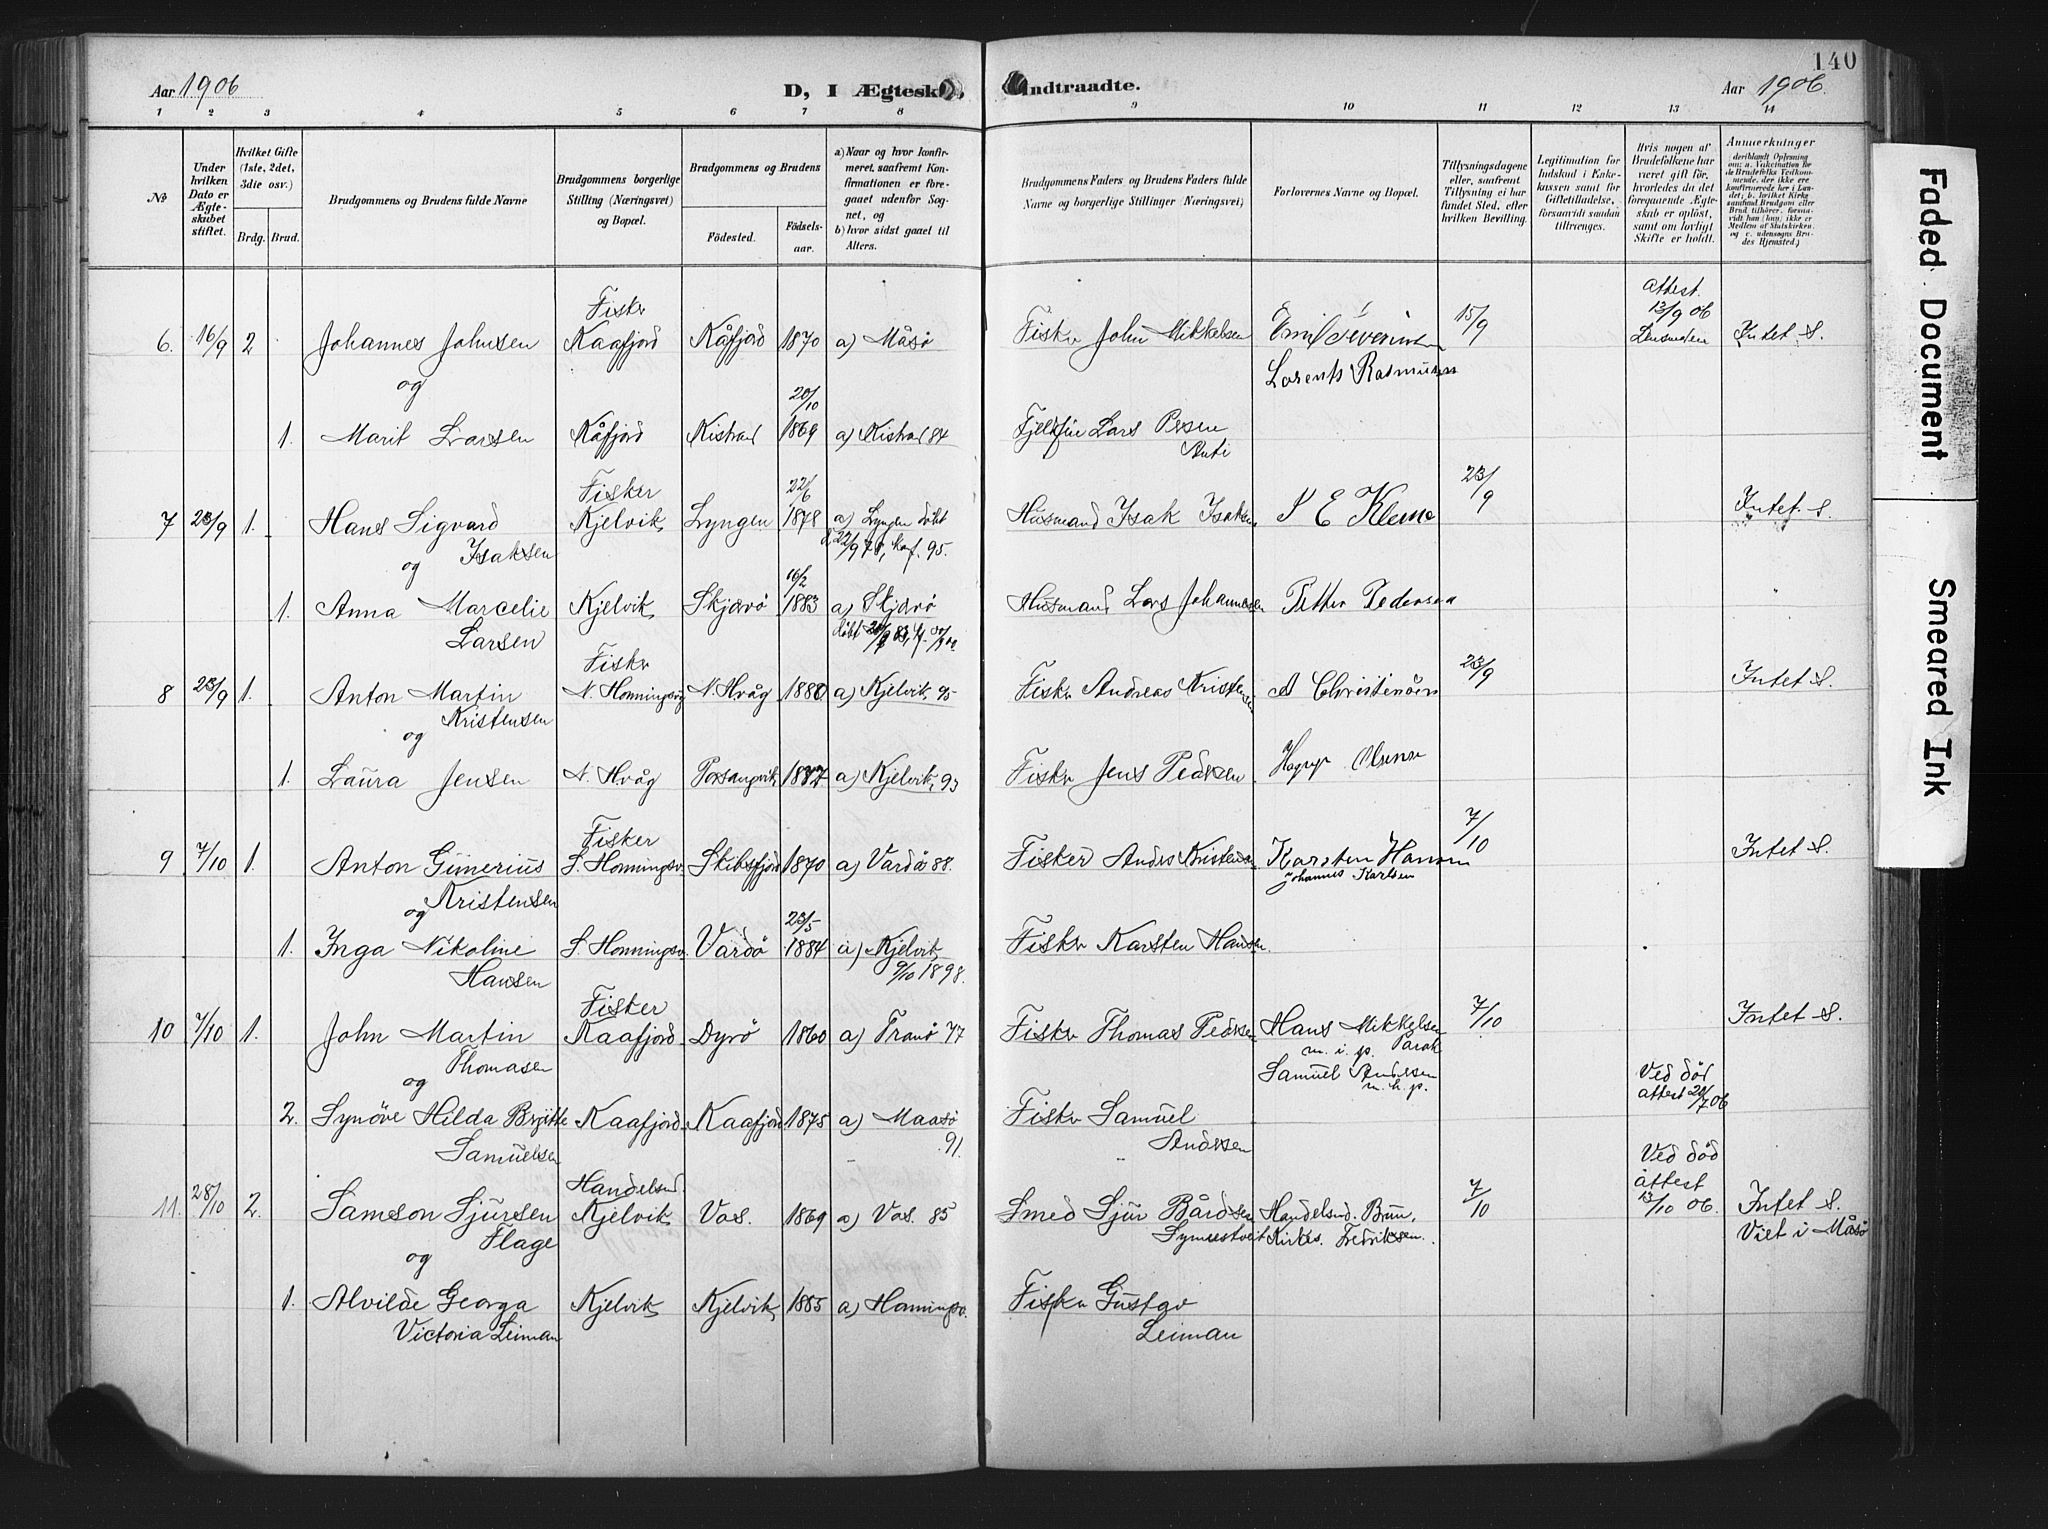 140
Aar 1906
D, I Ægtesk
Indtraadte.
Aar 1906.
1 2 3 4 5 6 7 8 9 10 11 12 13 14
№
Under hvilken Dato er Ægteskabet stiftet.
Hvilket Gifte (1ste, 2det, 3die osv.)
Brdg. Brud.
Brudgommens og Brudens fulde Navne
Brudgommens borgerlige Stilling (Næringsvei) og Bopæl.
Brudgommens og Brudens
Fødested.
Fødselsaar.
a) Naar og hvor konfirmeret, saafremt Konfirmationen er foregaaet udenfor Sognet, og
b) hvor sidst gaaet til Alters.
Brudgommens Faders og Brudens Faders fulde Navne og borgerlige Stillinger (Næringsvei)
Forlovernes Navne og Bopæl.
Tillysningsdagene eller, saafremt Tillysning ei har fundet Sted, efter hvilken Bevilling.
Legitimation for Indskud i Enkekassen samt for Giftetilladelse, forsaavidt saadan tiltrænges.
Hvis nogen af Brudefolkene har været gift før, hvorledes da det foregaaende Ægteskab er opløst, samt om lovligt Skifte er holdt.
Anmærkninger
(deriblandt Oplysning om: a. Vaccination for de Brudefolks Vedkommende, der ikke ere konfirmerede her i Landet, b. hvilket Kirkesamfund Brudgom eller Brud tilhører, forsaavidt han (hun) ikke er Medlem af Statskirken, og c. udensogns Brudes Hjemsted.)
6. 16/9 2 Johannes Johnsen Fisker Kaafjord Kåfjord 1870 a) Måsø Fisker John Mikkelsen Emil Severinsen 15/9 attest 13/9 06 Intet S.
og Lorents Rasmussen
1. Marit Larsen Kåfjord Kistrand 20/10 1869 a) Kistrand 84 Fjelfin Lars Persen
7 23/9 1. Hans Sigvard Fisker Kjelvik Lyngen 22/6 1878 a) Lyngen døbt Husmand Isak Isaksen 23/9 Intet S.
og Isaksen 22/9 78, kof. 95.
1. Anna Marcelie Kjelvik Skjærvø 16/2 1883 a) Skjærvø Husmand Lars Johannesen Petter Pedersen
Larsen
8 23/9 1. Anton Martin Fisker N. Honningsvåg N. Hvåg 1880 a) Kjelvik 95 Fisker Andreas Kristensen A Christensen 23/9 Intet S.
Kristensen
og
1. Laura Jensen N. Hvåg Porsangvik 1882 a) Kjelvik, 93 Fisker Jens Pedersen
9 7/10 1. Anton Gunerius Fisker S. Honningsv. Skibsfjord 1870 a) Vardø 88. Fisker Andrs Kristensen Karsten Hansen 7/10 Intet S.
og Kristensen Johannes Karlsen
1. Inga Nikoline S. Honningsv. Vardø 23/5 1884 a) Kjelvik Fisker Karsten Hansen.
Hansen 9/10 1898.
10 7/10 1. John Martin Fisker Kaafjord Dyrø 1860 a) Tranø 77 Fisker Thomas Pedersen Hans Mikkelsen 7/10 Intet S.
og Thomasen m. i. p. Parak
Samuel Andersen m. h. p.
2. Synøve Hilda Brgitte Kaafjord Kaafjord 1875 a) Maasø 91. Fisker Samuel Ved død attest 20/7 06
Samuelsen Andersen
11. 28/10 2. Samson Sjursen Handelsmd. Kjelvik Vos. 1869 a) Vos. 85 Smed Sjur Bårdsen Handelsmd. Brun, 7/10 Ved død attest 13/10 06. Intet S.
Flage Kirkes. Fredriksen. Viet i Måsø
og
1. Alvilde Georga Kjelvik Kjelvik 1885 a) Honningsv. Fisker Gustav
Victoria Leiman Leiman
Faded Document
Smeared Ink